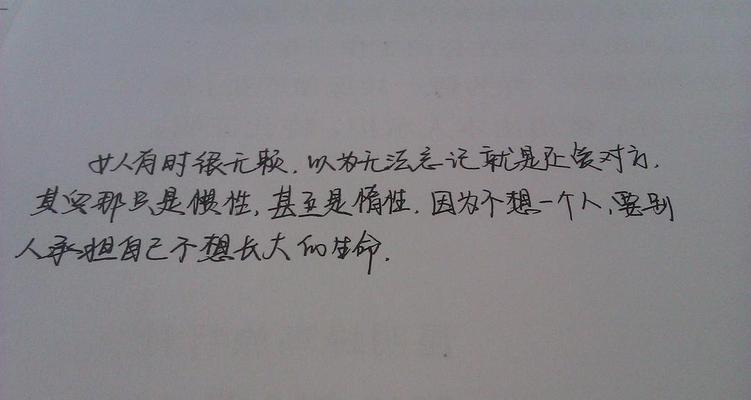 女人有时很无聊，以为无法忘记就是还爱对方，
其实那只是惯性，甚至是惰性，因为不想一个人，要别
人承担自己不想长大的生命.